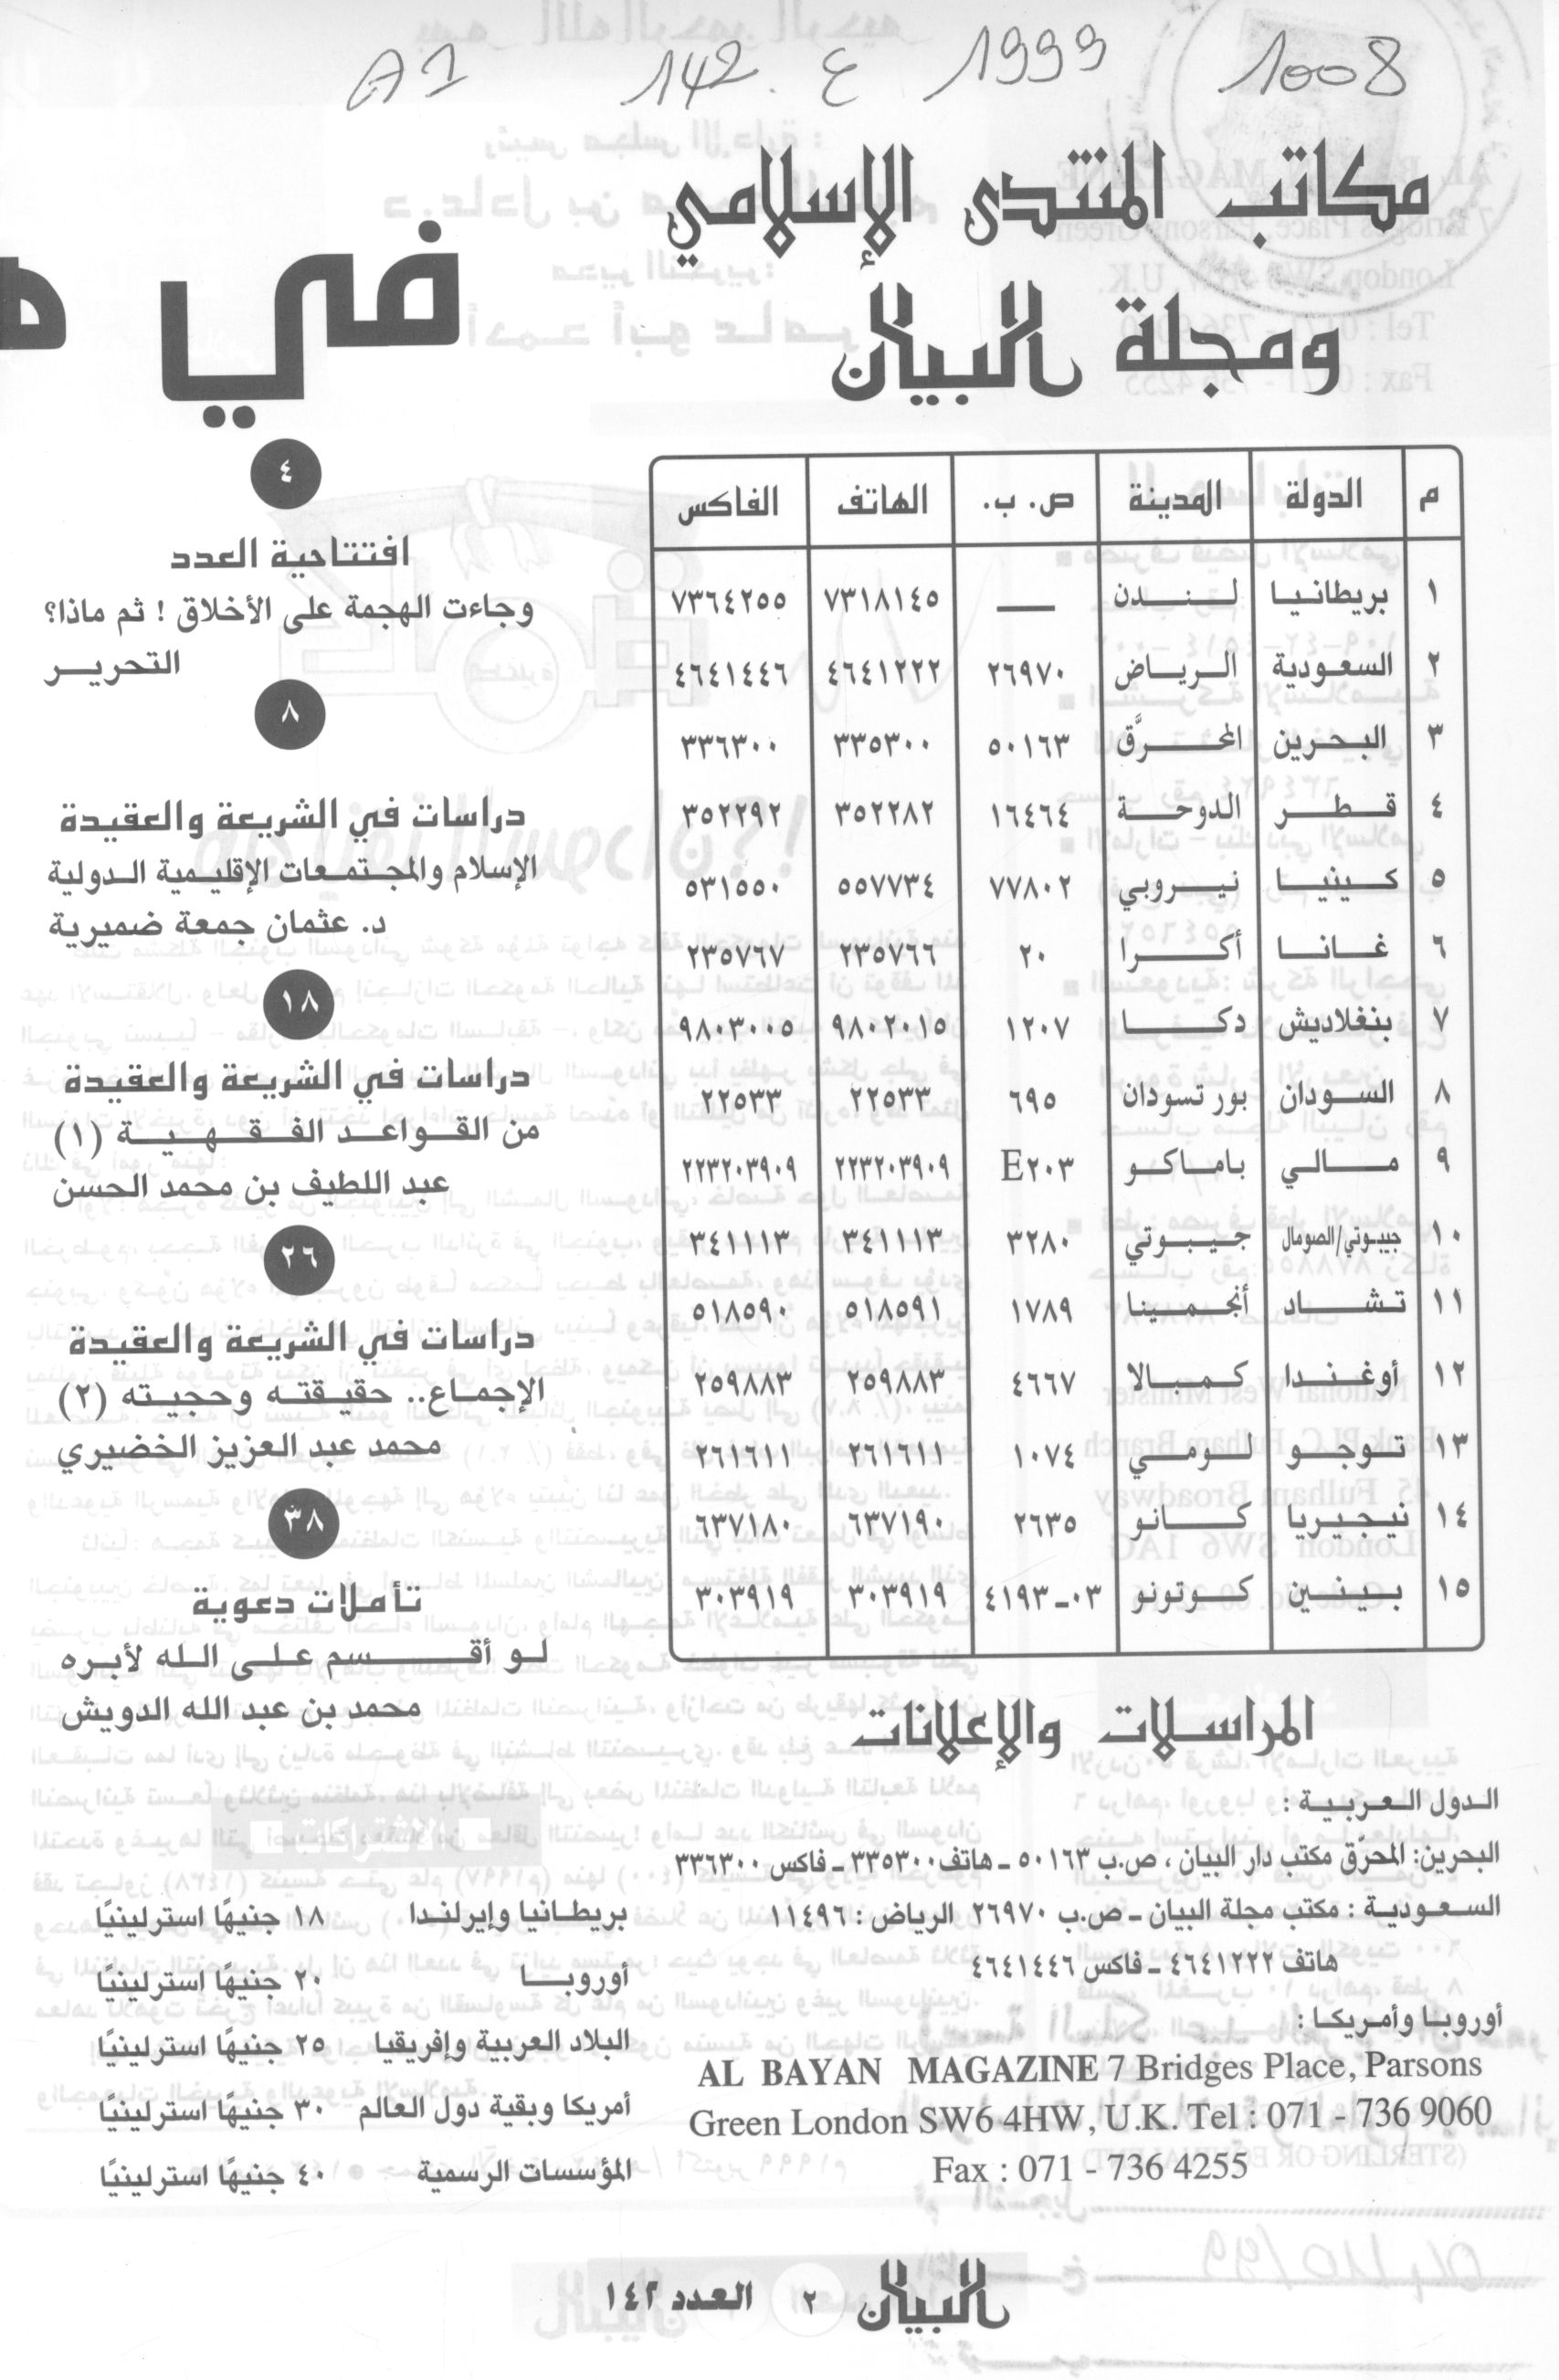 1008 1999 ع 142 A1
مكاتب المنتدى الإسلامي
ومجلة البيان
م الدولة المدينة ص. ب. الهاتف الفاكس
١ بريطانيا لندن — ٧٣١٨١٤٥ ٧٣٦٤٢٥٥
٢ السعودية الرياض ٢٦٩٧٠ ٤٦٤١٢٢٢ ٤٦٤١٤٤٦
٣ البحرين المحرَّق ٥٠١٦٣ ٣٣٥٣٠٠ ٣٣٦٣٠٠
٤ قطر الدوحة ١٦٤٦٤ ٣٥٢٢٨٢ ٣٥٢٢٩٢
٥ كينيا نيروبي ٧٧٨٠٢ ٥٥٧٧٣٤ ٥٣١٥٥٠
٦ غانا أكرا ٢٠ ٢٣٥٧٦٦ ٢٣٥٧٦٧
٧ بنغلاديش دكا ١٢٠٧ ٩٨٠٢٠١٥ ٩٨٠٣٠٠٥
٨ السودان بور تسودان ٦٩٥ ٢٢٥٣٣ ٢٢٥٣٣
٩ مالي باماكو E٢٠٣ ٢٢٣٢٠٣٩٠٩ ٢٢٣٢٠٣٩٠٩
١٠ جيبوتي/الصومال جيبوتي ٣٢٨٠ ٣٤١١١٣ ٣٤١١١٣
١١ تشاد أنجمينا ١٧٨٩ ٥١٨٥٩١ ٥١٨٥٩٠
١٢ أوغندا كمبالا ٤٦٦٧ ٢٥٩٨٨٣ ٢٥٩٨٨٣
١٣ توجو لومي ١٠٧٤ ٢٦١٦١١ ٢٦١٦١١
١٤ نيجيريا كانو ٢٦٣٥ ٦٣٧١٩٠ ٦٣٧١٨٠
١٥ بينين كوتونو ٠٣-٤١٩٣ ٣٠٣٩١٩ ٣٠٣٩١٩
المراسلات والإعلانات
الدول العربية :
البحرين: المحرّق مكتب دار البيان ، ص.ب ٥٠١٦٣ ـ هاتف ٣٣٥٣٠٠ ـ فاكس ٣٣٦٣٠٠
السعودية : مكتب مجلة البيان ـ ص.ب ٢٦٩٧٠ الرياض : ١١٤٩٦
هاتف ٤٦٤١٢٢٢ ـ فاكس ٤٦٤١٤٤٦
أوروبا وأمريكا :
AL BAYAN MAGAZINE 7 Bridges Place, Parsons
Green London SW6 4HW, U.K. Tel : 071 - 736 9060
Fax : 071 - 736 4255
في
٤
افتتاحية العدد
وجاءت الهجمة على الأخلاق ! ثم ماذا؟
التحرير
٨
دراسات في الشريعة والعقيدة
الإسلام والمجتمعات الإقليمية الدولية
د. عثمان جمعة ضميرية
١٨
دراسات في الشريعة والعقيدة
من القواعد الفقهية (١)
عبد اللطيف بن محمد الحسن
٢٦
دراسات في الشريعة والعقيدة
الإجماع.. حقيقته وحجيته (٢)
محمد عبد العزيز الخضيري
٣٨
تأملات دعوية
لو أقسم على الله لأبره
محمد بن عبد الله الدويش
بريطانيا وإيرلندا ١٨ جنيهًا استرلينيًا
أوروبا ٢٠ جنيهًا استرلينيًا
البلاد العربية وإفريقيا ٢٥ جنيهًا استرلينيًا
أمريكا وبقية دول العالم ٣٠ جنيهًا استرلينيًا
المؤسسات الرسمية ٤٠ جنيهًا استرلينيًا
البيان ٢ العدد ١٤٢